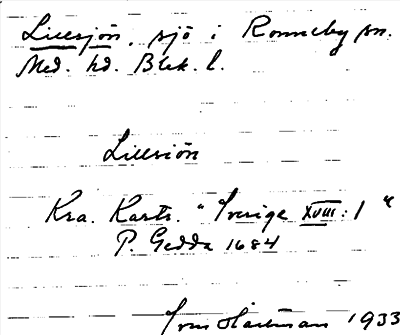 Lillsjön, sjö i Ronneby sn.
Med. hd. Blek. l.
Lillsiön
Kra. Kartv. "Sverige XVIII:1"
P. Gedda 1684
Hartman 1933